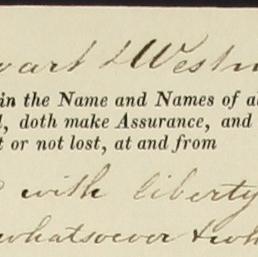 wart & Westw
in the Name and Names of al
l, doth make Assurance, and
t or not lost, at and from
with liberty
whatsoever & wh